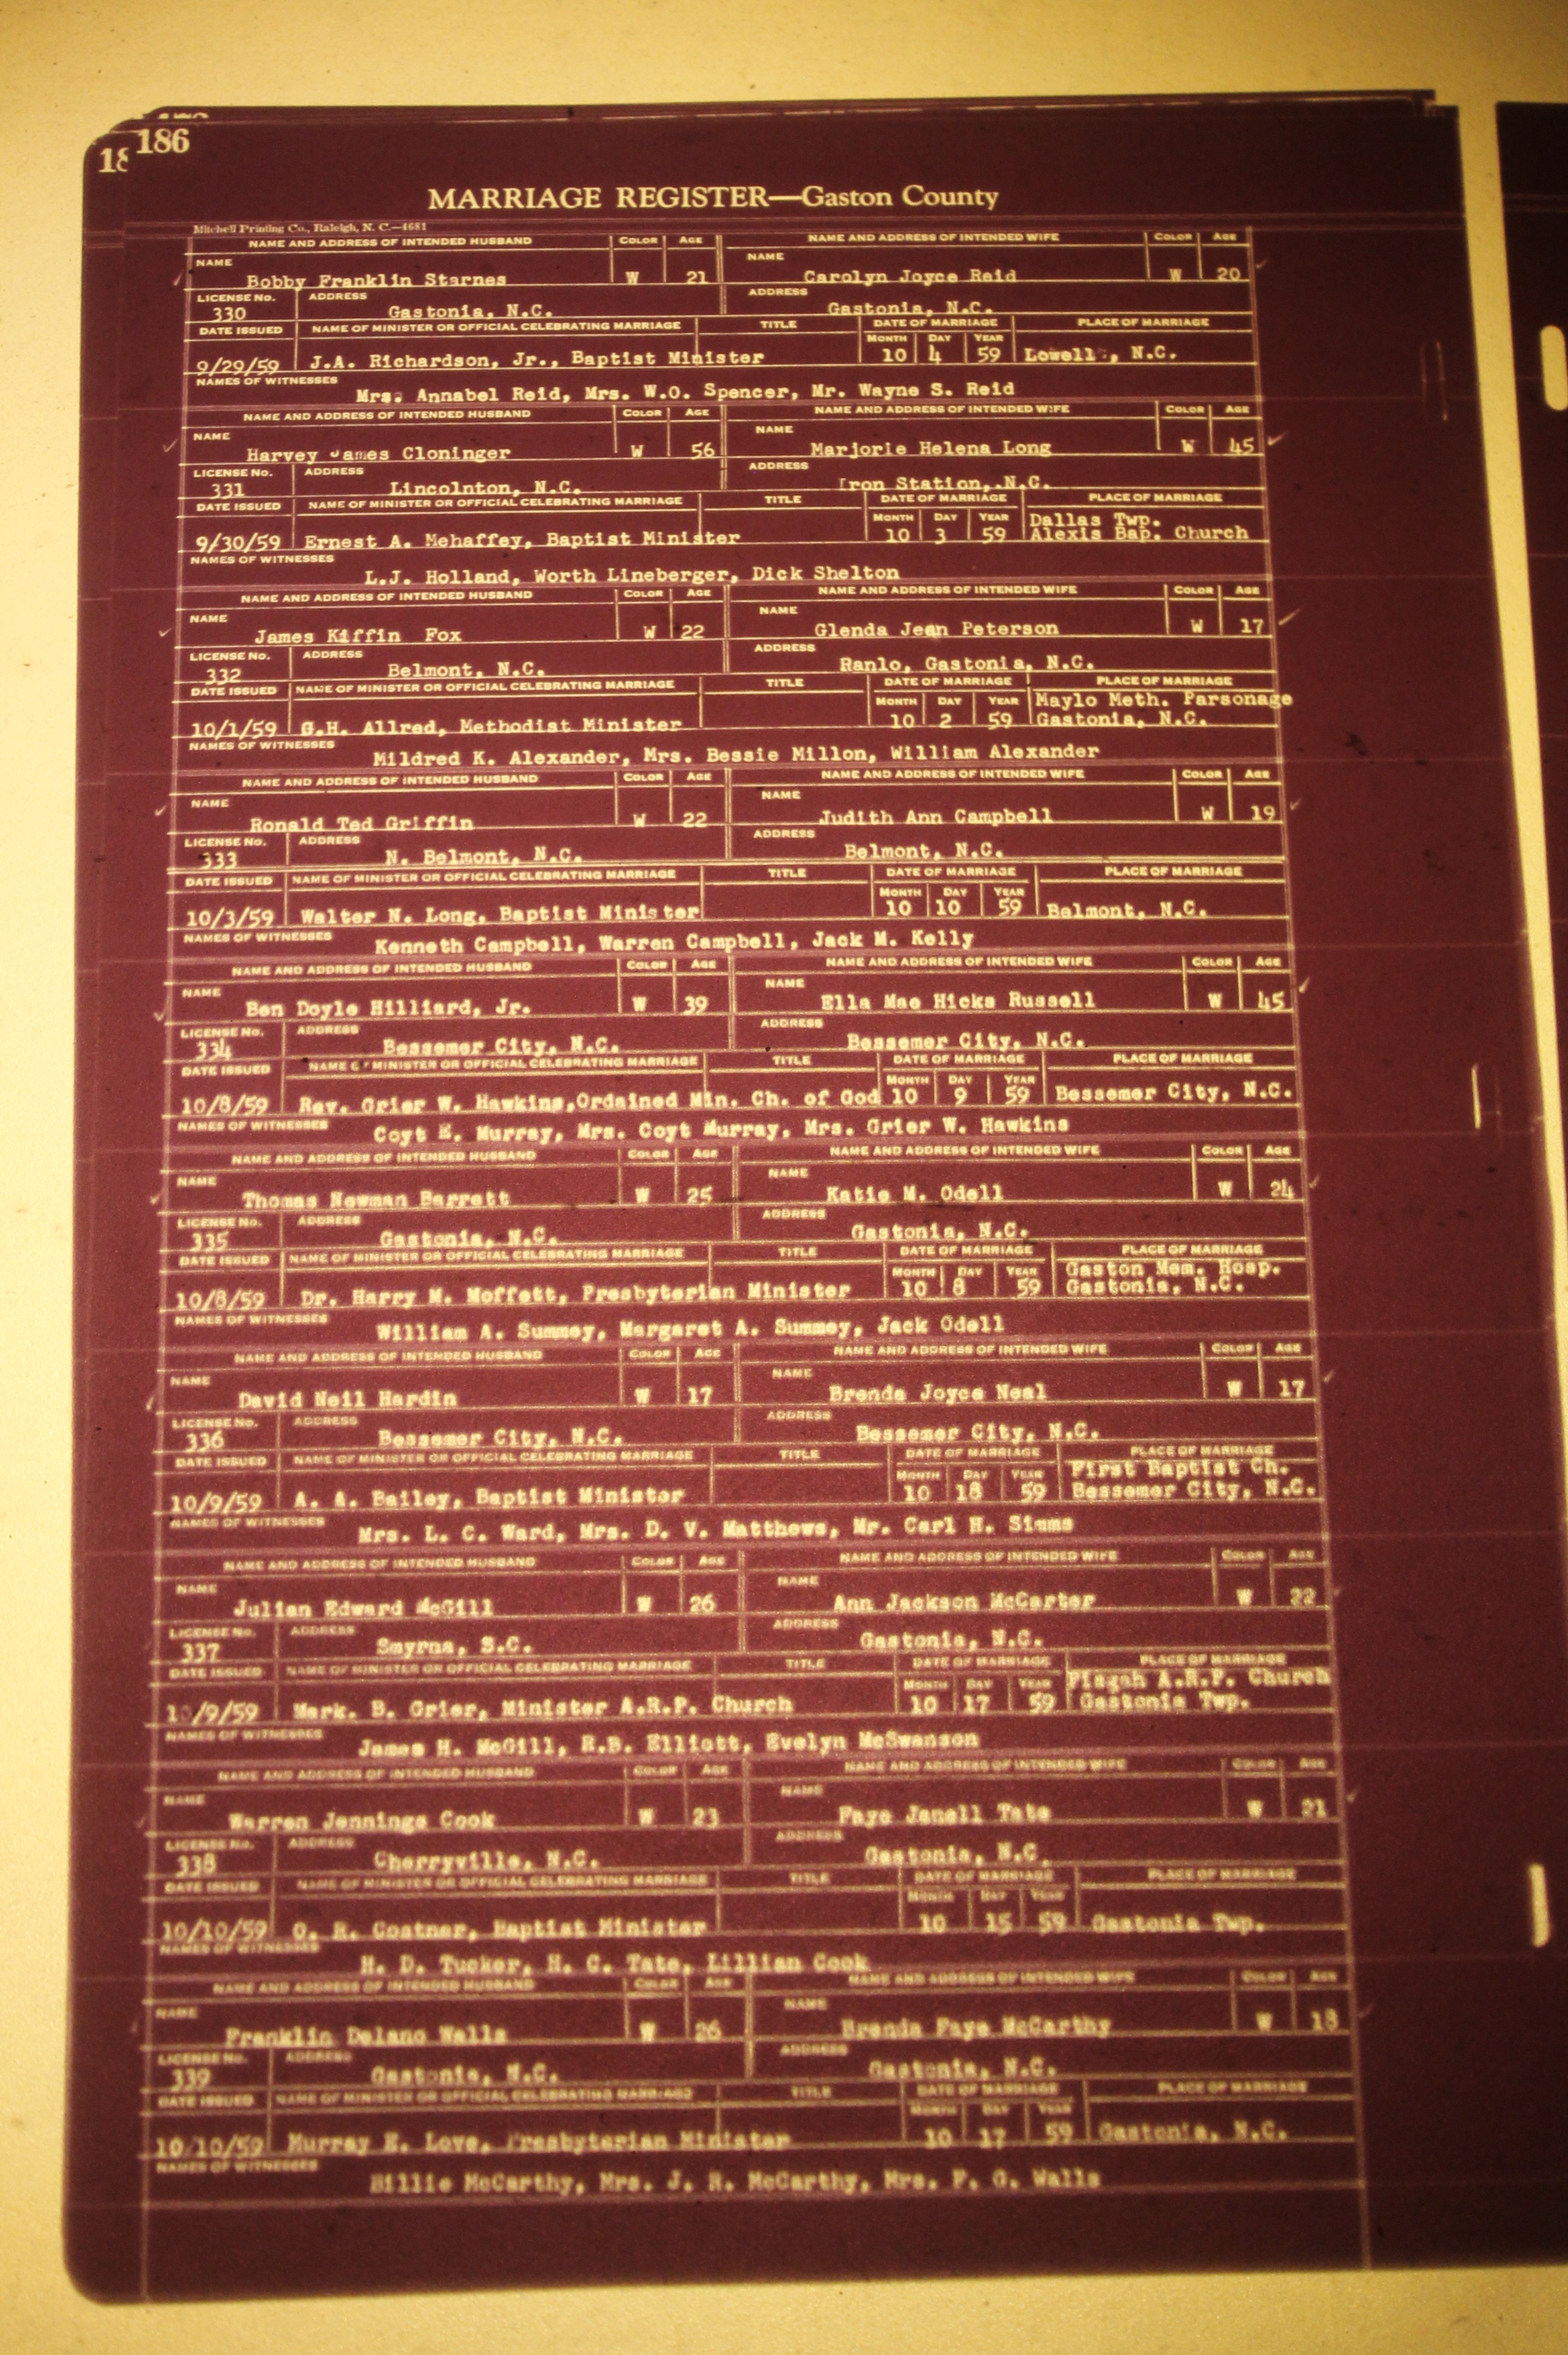 186
18
MARRIAGE REGISTER—Gaston County
Mitchell Printing Co., Raleigh, N. C.—4681
NAME AND ADDRESS OF INTENDED HUSBAND COLOR AGE NAME AND ADDRESS OF INTENDED WIFE COLOR AGE
NAME Bobby Franklin Starnes W 21 NAME Carolyn Joyce Reid W 20
LICENSE No. 330 ADDRESS Gastonia, N.C. ADDRESS Gastonia, N.C.
DATE ISSUED NAME OF MINISTER OR OFFICIAL CELEBRATING MARRIAGE TITLE DATE OF MARRIAGE PLACE OF MARRIAGE
MONTH DAY YEAR
9/29/59 J.A. Richardson, Jr., Baptist Minister 10 4 59 Lowell, N.C.
NAMES OF WITNESSES Mrs. Annabel Reid, Mrs. W.O. Spencer, Mr. Wayne S. Reid
NAME AND ADDRESS OF INTENDED HUSBAND COLOR AGE NAME AND ADDRESS OF INTENDED WIFE COLOR AGE
NAME Harvey James Cloninger W 56 NAME Marjorie Helena Long W 45
LICENSE No. 331 ADDRESS Lincolnton, N.C. ADDRESS Iron Station, N.C.
DATE ISSUED NAME OF MINISTER OR OFFICIAL CELEBRATING MARRIAGE TITLE DATE OF MARRIAGE PLACE OF MARRIAGE
MONTH DAY YEAR Dallas Twp.
9/30/59 Ernest A. Mehaffey, Baptist Minister 10 3 59 Alexis Bap. Church
NAMES OF WITNESSES L.J. Holland, Worth Lineberger, Dick Shelton
NAME AND ADDRESS OF INTENDED HUSBAND COLOR AGE NAME AND ADDRESS OF INTENDED WIFE COLOR AGE
NAME James Kiffin Fox W 22 NAME Glenda Jean Peterson W 17
LICENSE No. 332 ADDRESS Belmont, N.C. ADDRESS Ranlo, Gastonia, N.C.
DATE ISSUED NAME OF MINISTER OR OFFICIAL CELEBRATING MARRIAGE TITLE DATE OF MARRIAGE PLACE OF MARRIAGE
MONTH DAY YEAR Maylo Meth. Parsonage
10/1/59 G.H. Allred, Methodist Minister 10 2 59 Gastonia, N.C.
NAMES OF WITNESSES Mildred K. Alexander, Mrs. Bessie Millon, William Alexander
NAME AND ADDRESS OF INTENDED HUSBAND COLOR AGE NAME AND ADDRESS OF INTENDED WIFE COLOR AGE
NAME Ronald Ted Griffin W 22 NAME Judith Ann Campbell W 19
LICENSE No. 333 ADDRESS N. Belmont, N.C. ADDRESS Belmont, N.C.
DATE ISSUED NAME OF MINISTER OR OFFICIAL CELEBRATING MARRIAGE TITLE DATE OF MARRIAGE PLACE OF MARRIAGE
MONTH DAY YEAR
10/3/59 Walter N. Long, Baptist Minister 10 10 59 Belmont, N.C.
NAMES OF WITNESSES Kenneth Campbell, Warren Campbell, Jack M. Kelly
NAME AND ADDRESS OF INTENDED HUSBAND COLOR AGE NAME AND ADDRESS OF INTENDED WIFE COLOR AGE
NAME Ben Doyle Hilliard, Jr. W 39 NAME Ella Mae Hicks Russell W 45
LICENSE No. 334 ADDRESS Bessemer City, N.C. ADDRESS Bessemer City, N.C.
DATE ISSUED NAME OF MINISTER OR OFFICIAL CELEBRATING MARRIAGE TITLE DATE OF MARRIAGE PLACE OF MARRIAGE
MONTH DAY YEAR
10/8/59 Rev. Grier W. Hawkins,Ordained Min. Ch. of God 10 9 59 Bessemer City, N.C.
NAMES OF WITNESSES Coyt E. Murray, Mrs. Coyt Murray, Mrs. Grier W. Hawkins
NAME AND ADDRESS OF INTENDED HUSBAND COLOR AGE NAME AND ADDRESS OF INTENDED WIFE COLOR AGE
NAME Thomas Newman Barrett W 25 NAME Katie M. Odell W 24
LICENSE No. 335 ADDRESS Gastonia, N.C. ADDRESS Gastonia, N.C.
DATE ISSUED NAME OF MINISTER OR OFFICIAL CELEBRATING MARRIAGE TITLE DATE OF MARRIAGE PLACE OF MARRIAGE
MONTH DAY YEAR Gaston Mem. Hosp.
10/8/59 Dr. Harry M. Moffett, Presbyterian Minister 10 8 59 Gastonia, N.C.
NAMES OF WITNESSES William A. Summey, Margaret A. Summey, Jack Odell
NAME AND ADDRESS OF INTENDED HUSBAND COLOR AGE NAME AND ADDRESS OF INTENDED WIFE COLOR AGE
NAME David Neil Hardin W 17 NAME Brenda Joyce Neal W 17
LICENSE No. 336 ADDRESS Bessemer City, N.C. ADDRESS Bessemer City, N.C.
DATE ISSUED NAME OF MINISTER OR OFFICIAL CELEBRATING MARRIAGE TITLE DATE OF MARRIAGE PLACE OF MARRIAGE
MONTH DAY YEAR First Baptist Ch.
10/9/59 A. A. Bailey, Baptist Minister 10 18 59 Bessemer City, N.C.
NAMES OF WITNESSES Mrs. L. C. Ward, Mrs. D. V. Matthews, Mr. Carl H. Simms
NAME AND ADDRESS OF INTENDED HUSBAND COLOR AGE NAME AND ADDRESS OF INTENDED WIFE COLOR AGE
NAME Julian Edward McGill W 26 NAME Ann Jackson McCarter W 22
LICENSE No. 337 ADDRESS Smyrna, S.C. ADDRESS Gastonia, N.C.
DATE ISSUED NAME OF MINISTER OR OFFICIAL CELEBRATING MARRIAGE TITLE DATE OF MARRIAGE PLACE OF MARRIAGE
MONTH DAY YEAR Pisgah A.R.P. Church
10/9/59 Mark. B. Grier, Minister A.R.P. Church 10 17 59 Gastonia Twp.
NAMES OF WITNESSES James H. McGill, R.B. Elliott, Evelyn McSwanson
NAME AND ADDRESS OF INTENDED HUSBAND COLOR AGE NAME AND ADDRESS OF INTENDED WIFE COLOR AGE
NAME Warren Jennings Cook W 23 NAME Faye Janell Tate W 21
LICENSE No. 338 ADDRESS Cherryville, N.C. ADDRESS Gastonia, N.C.
DATE ISSUED NAME OF MINISTER OR OFFICIAL CELEBRATING MARRIAGE TITLE DATE OF MARRIAGE PLACE OF MARRIAGE
MONTH DAY YEAR
10/10/59 O. R. Costner, Baptist Minister 10 15 59 Gastonia Twp.
NAMES OF WITNESSES H. D. Tucker, H. C. Tate, Lillian Cook
NAME AND ADDRESS OF INTENDED HUSBAND COLOR AGE NAME AND ADDRESS OF INTENDED WIFE COLOR AGE
NAME Franklin Delano Walls W 26 NAME Brenda Faye McCarthy W 18
LICENSE No. 339 ADDRESS Gastonia, N.C. ADDRESS Gastonia, N.C.
DATE ISSUED NAME OF MINISTER OR OFFICIAL CELEBRATING MARRIAGE TITLE DATE OF MARRIAGE PLACE OF MARRIAGE
MONTH DAY YEAR
10/10/59 Murray E. Love, Presbyterian Minister 10 17 59 Gastonia, N.C.
NAMES OF WITNESSES Billie McCarthy, Mrs. J. R. McCarthy, Mrs. F. G. Walls